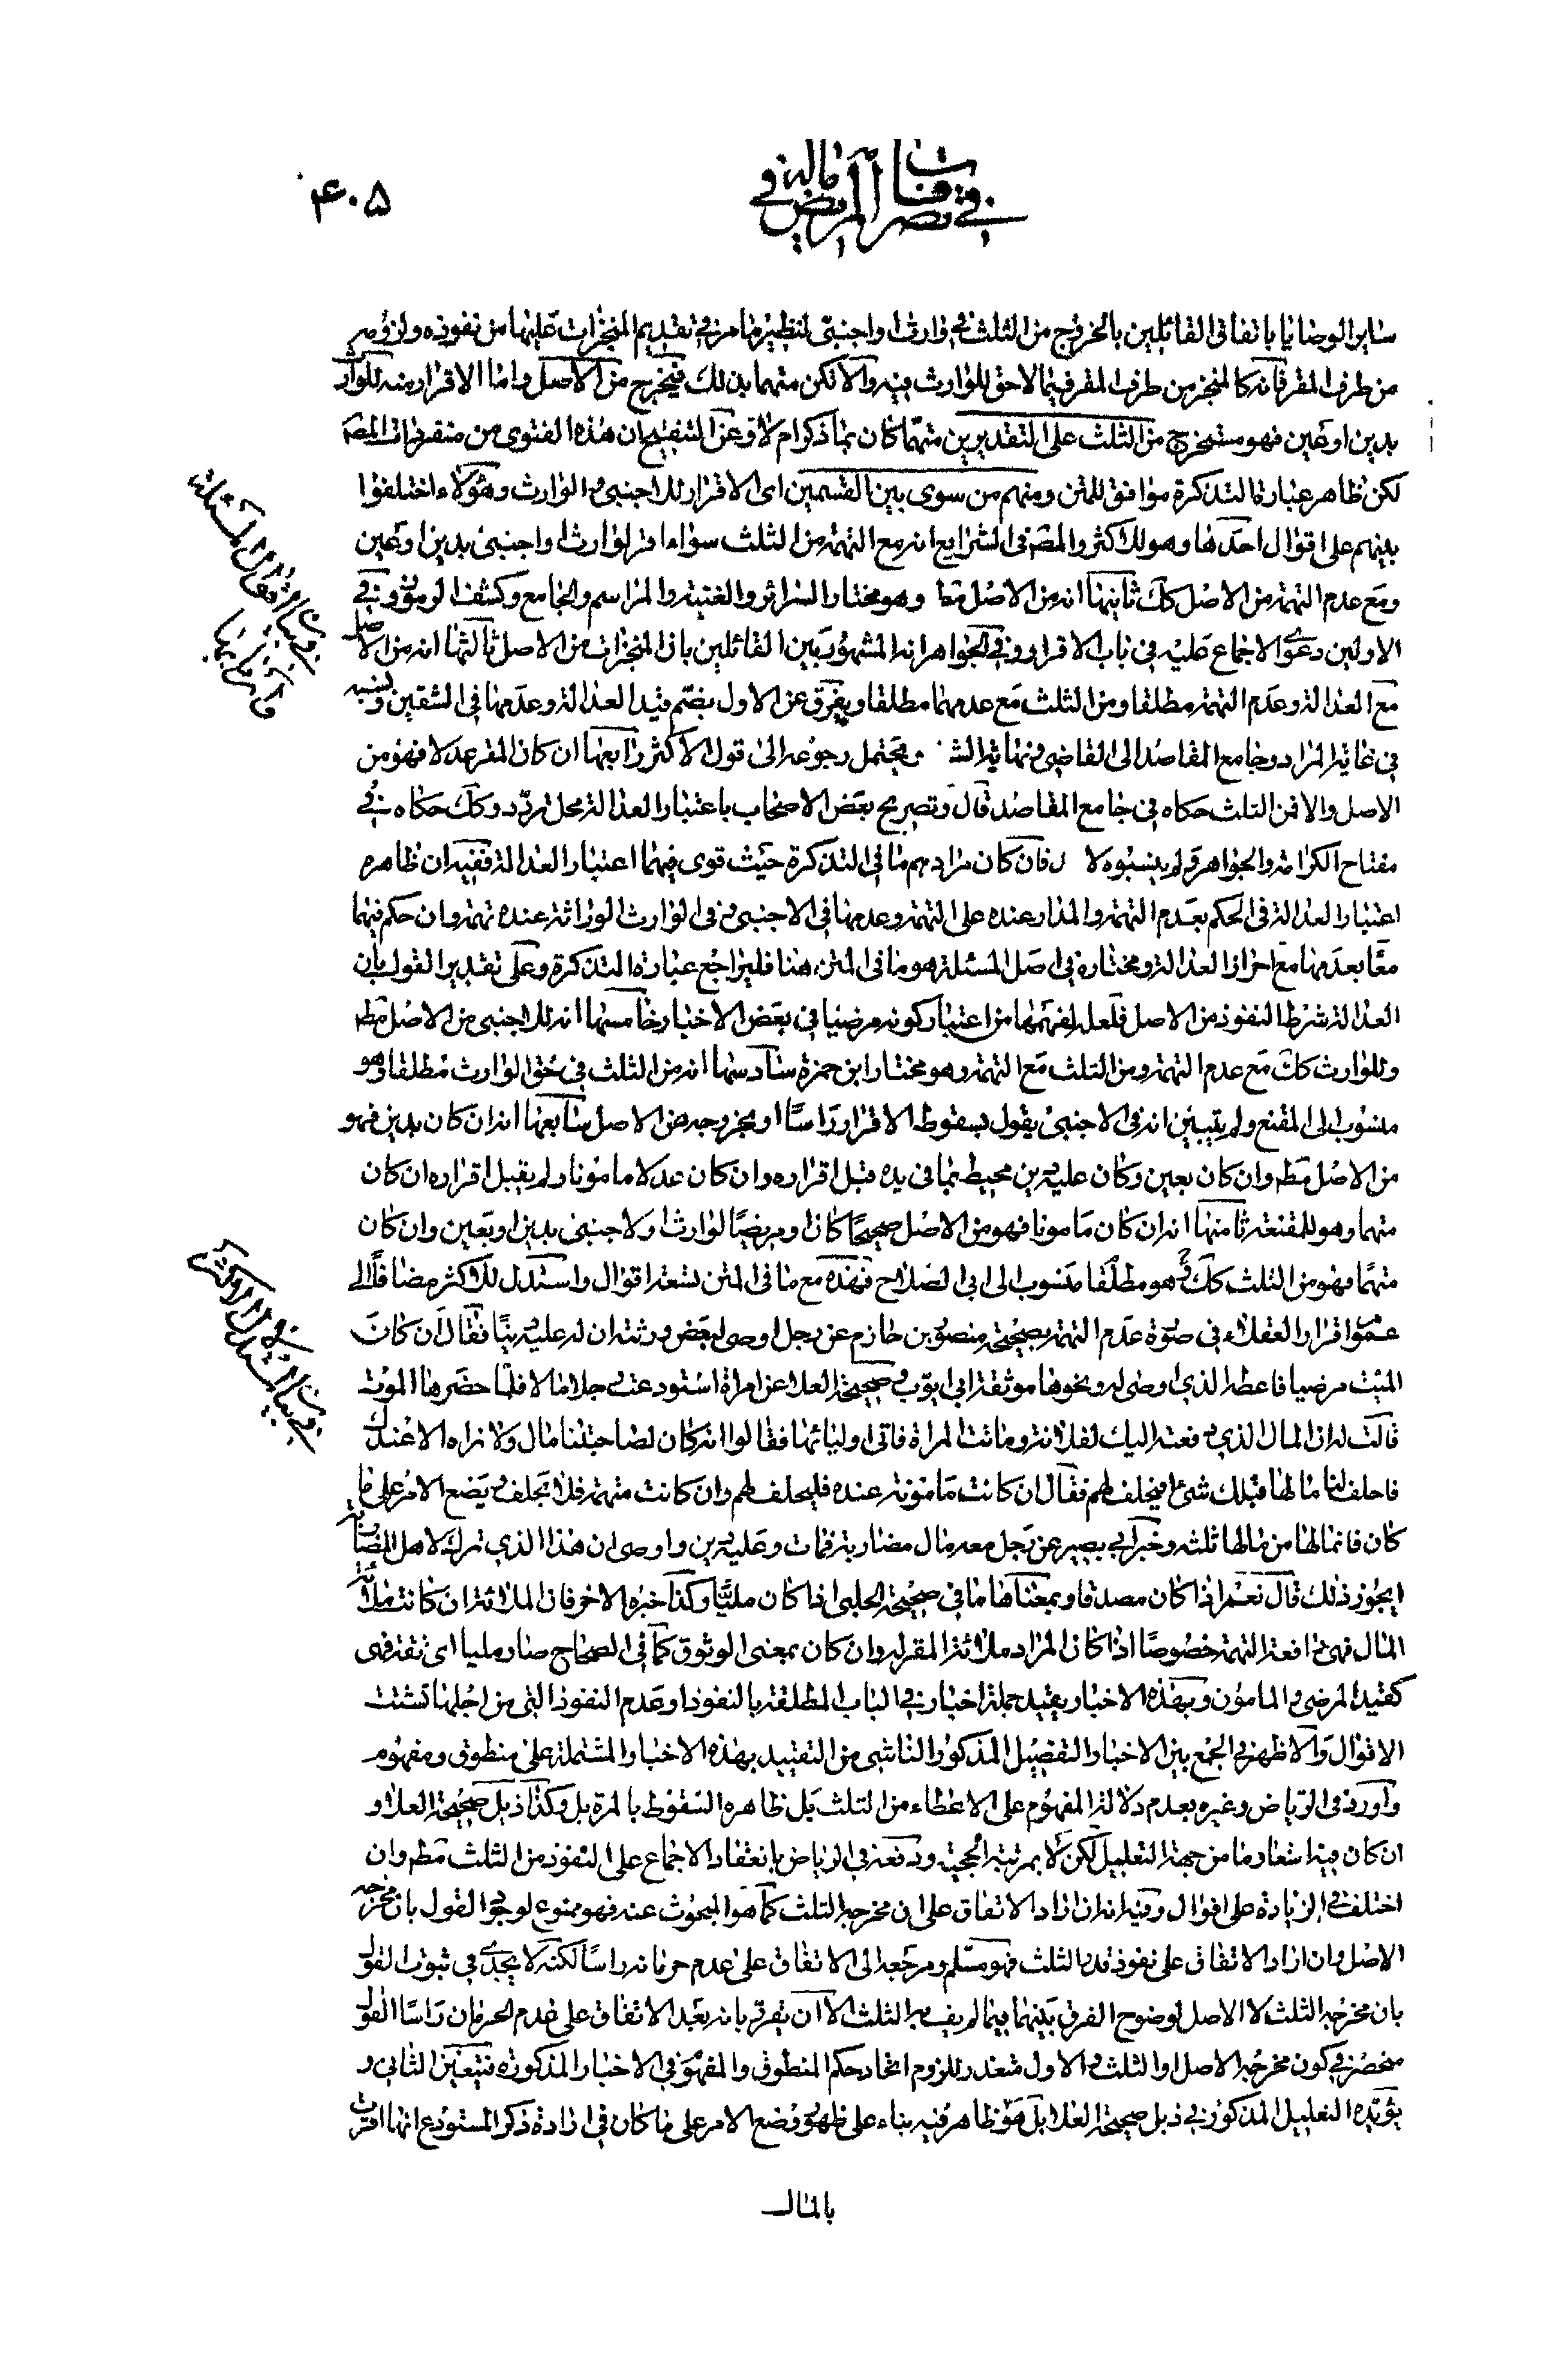 في تصرفات المريض المالية
۴۰۵
ساير الوصايا باتفاق القائلين بالخروج من الثلث في وارث او اجنبي لنظير ما مر في تقديم المنجزات عليها من نفوذه ولزومه
من طرف المقر فانه كالمنجز من طرف المقر فيما لاحق للوارث فيه والا لكن متهما بذلك فيخرج من الاصل واما الاقرار منه للوارث
بدين او بعين فهو مستخرج من الثلث على التقديرين متهما كان بما ذكر ام لا وعن التنقيح ان هذه الفتوى من متفردات المصـ
لكن ظاهر عبارة التذكرة موافق للمتن ومنهم من سوى بين القسمين اى الاقرار للاجنبي والوارث وهؤلاء اختلفوا
بينهم على اقوال احدها وهو للاكثر والمصـ في الشرايع انه مع التهمة من الثلث سواء اقر لوارث او اجنبي بدين او بعين
ومع عدم التهمة من الاصل كك ثانيها انه من الاصل مط وهو مختار السرائر والغنية والمراسم والجامع وكشف الرموز وفي
الاولين دعوى الاجماع عليه في باب الاقرار وفي الجواهر انه المشهور بين القائلين بان المنجزات من الاصل ثالثها انه من الاصل
مع العدالة وعدم التهمة مطلقا ومن الثلث مع عدمهما مطلقا ويفرق عن الاول بضم قيد العدالة وعدمها في الشقين ونسبه
في غاية المراد وجامع المقاصد الى القاضي ونهاية الشـ ويحتمل رجوعه الى قول الاكثر رابعها ان كان المقر عدلا فهو من
الاصل والا فمن الثلث حكاه في جامع المقاصد قال وتصريح بعض الاصحاب باعتبار العدالة محل تردد وكك حكاه في
مفتاح الكرامة والجواهر ولم ينسبوه لا فان كان مرادهم ما في التذكرة حيث قوى فيهما اعتبار العدالة ففيه ان ظاهره
اعتبار العدالة في الحكم بعدم التهمة والمدار عنده على التهمة وعدمها في الاجنبي وفي الوارث الوراثة عنده تهمة وان حكم فيهما
معا بعدمها مع احراز العدالة ومختاره في اصل المسئلة هو ما في المتن هنا فليراجع عبارة التذكرة وعلى تقدير القول بان
العدالة شرط النفوذ من الاصل فلعله لفهمها من اعتبار كونه مرضيا في بعض الاخبار خامسها انه للاجنبي من الاصل مط
وللوارث كك مع عدم التهمة ومن الثلث مع التهمة وهو مختار ابن حمزة سادسها انه من الثلث في حق الوارث مطلقا وهو
منسوب الى المقنع ولم يتبين انه في الاجنبي يقول بسقوط الاقرار راسا او بخروجه من الاصل سابعها انه ان كان بدين فهو
من الاصل مط وان كان بعين وكان عليه دين محيط بما في يده قبل اقراره وان كان عدلا مامونا ولم يقبل اقراره ان كان
متهما وهو للمقنعة ثامنها انه ان كان مامونا فهو من الاصل صحيحا كان او مريضا لوارث او لاجنبي بدين او بعين وان كان
متهما فهو من الثلث كك وهو مطلقا منسوب الى ابي الصلاح فهذه مع ما في المتن تسعة اقوال واستدل للاكثر مضافا الى
عموم اقرار العقلاء في صورة عدم التهمة بصحيحة منصور بن حازم عن رجل اوصى لبعض ورثته ان له عليه دينا فقال ان كان
الميت مرضيا فاعطه الذي اوصى له ونحوها موثقة ابي ايوب وصحيحة العلا عن امراة استودعت رجلا مالا فلما حضرها الموت
قالت له ان المال الذي دفعته اليك لفلانة وماتت المراة فاتى اولياؤها فقالوا انه كان لصاحبتنا مال ولا نراه الا عندك
فاحلف لنا ما لها قبلك شئ افيحلف لهم فقال ان كانت مامونة عنده فليحلف لهم وان كانت متهمة فلا يحلف ويضع الامر على ما
كان فانما لها من مالها ثلثه وخبر ابي بصير عن رجل معه مال مضاربة فمات وعليه دين واوصى ان هذا الذي ترك لاهل المضاربة
ايجوز ذلك قال نعم اذا كان مصدقا وبمعناها ما في صحيحة الحلبي اذا كان مليا وكذا خبره الاخر فان الملائة ان كانت ملائة
المال فهى دافعة التهمة خصوصا اذا كان المراد ملائة المقر له وان كان بمعنى الوثوق كما في الصحاح صار مليا اى ثقة فهى
كقيد المرضي والمامون وبهذه الاخبار يقيد جملة اخبار في الباب المطلقة بالنفوذ او عدم النفوذ التي من اجلها تشتت
الاقوال والاظهر في الجمع بين الاخبار التفصيل المذكور الناشي من التقييد بهذه الاخبار المشتملة على منطوق ومفهوم
واورد في الرياض وغيره بعدم دلالة المفهوم على الاعطاء من الثلث بل ظاهره السقوط بالمرة بل وكذا ذيل صحيحة العلا و
ان كان فيه اشعار ما من جهة التعليل لكن لا بمرتبة الحجية ودفعه في الرياض بانعقاد الاجماع على النفوذ من الثلث مط وان
اختلف في الزيادة على اقوال وفيه انه ان اراد الاتفاق على ان مخرجه الثلث كما هو المبحوث عنه فهو ممنوع لوجود القول بان مخرجه
الاصل وان اراد الاتفاق على نفوذ قدر الثلث فهو مسلم ومرجعه الى الاتفاق على عدم حرمانه راسا لكنه لا يجدى في ثبوت القول
بان مخرجه الثلث لا الاصل لوضوح الفرق بينهما فيما لم يف به الثلث الا ان يقرر بانه بعد الاتفاق على عدم الحرمان راسا القول
منحصر في كون مخرجه الاصل او الثلث والاول متعذر للزوم اتحاد حكم المنطوق والمفهوم في الاخبار المذكورة فتعين الثاني و
يؤيده التعليل المذكور في ذيل صحيحة العلا بل هو ظاهر فيه بناء على ظهور وضع الامر على ما كان في ارادة ذكر المستودع انها اقرت
بالمال
في بيان اقوال المسئلة
في بيان ما استدل به للاكثر